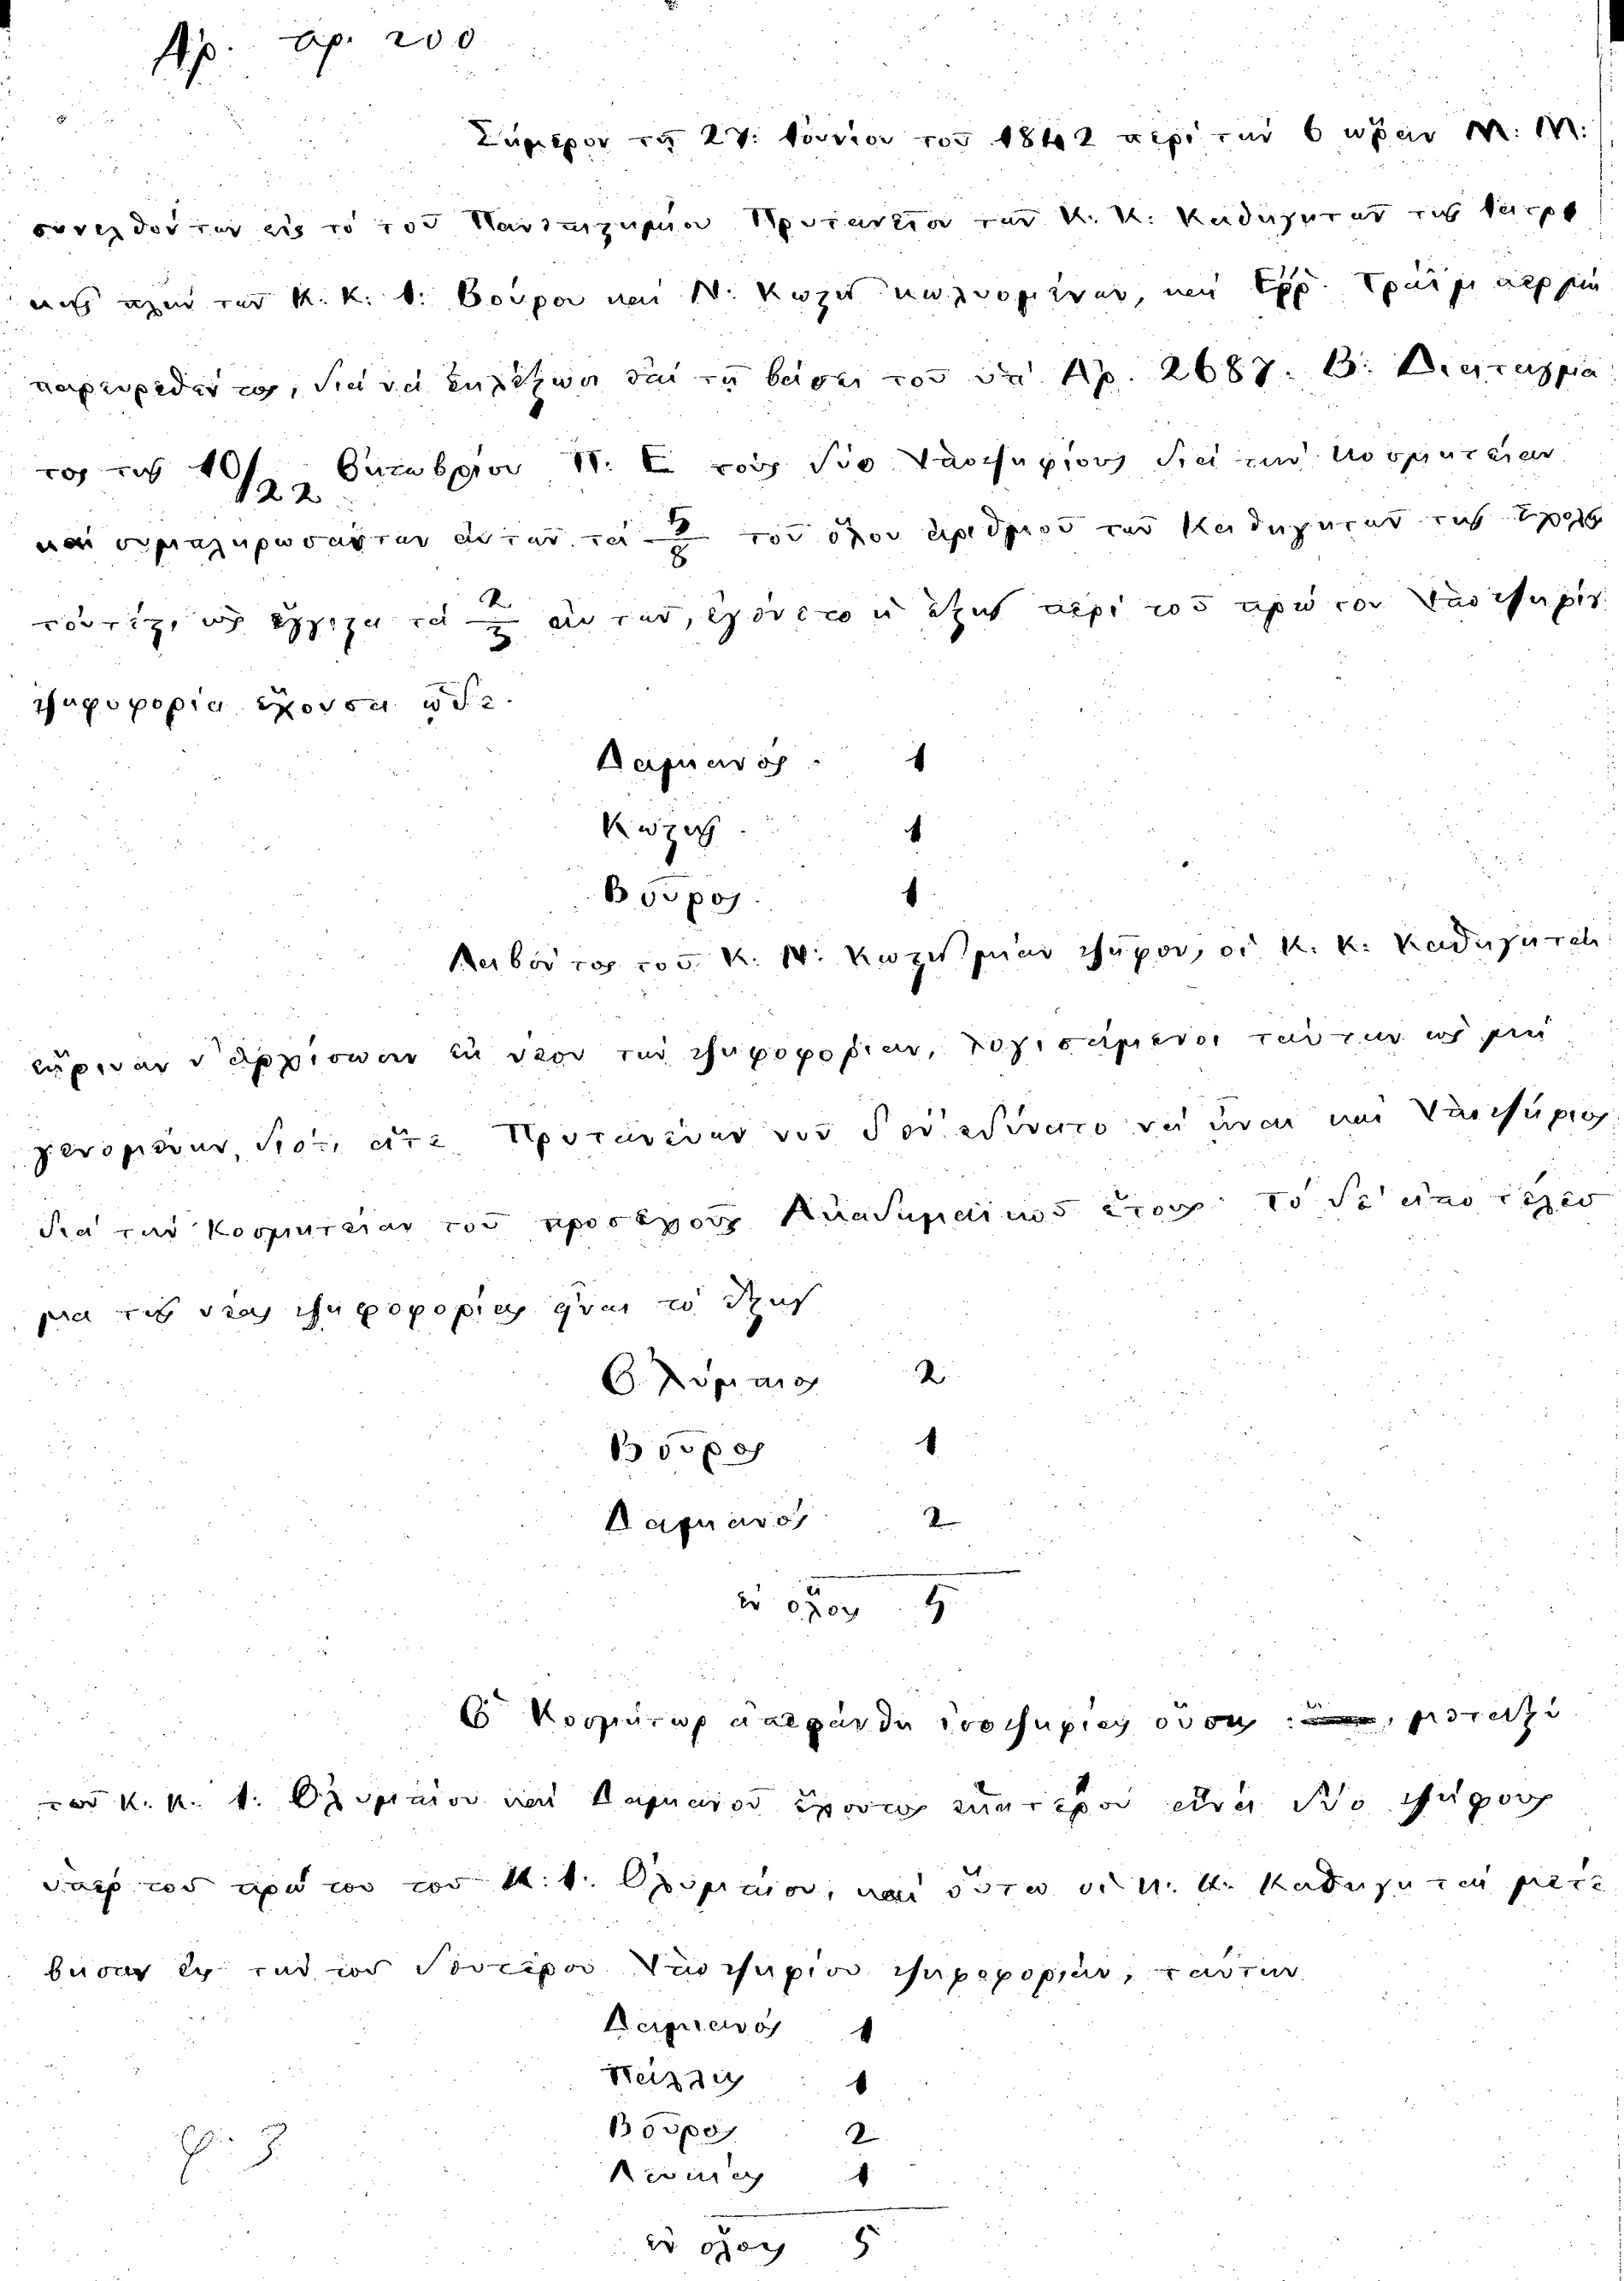 Αρ. αρ. 200
Σήμερον τῇ 27: Ἰουνίου τοῦ 1842 περὶ τὴν 6 ὥραν Μ: Μ:
συνελθόντων εἰς τὸ τοῦ Πανεπιστημίου Πρυτανεῖον τῶν Κ. Κ. Καθηγητῶν τῆς Ἰατρι
κῆς πλὴν τῶν Κ. Κ. Ἰ: Βούρου καὶ Ν: Κωστῆ κωλυομένων, καὶ Ἐρρ. Τράϊμπερ μὴ
παρευρεθέντος, διὰ νὰ ἐκλέξωσι ἐπὶ τῇ βάσει τοῦ ὑπ' Αρ. 2687. Β: Διατάγμα
τος τῆς 10/22 Ὀκτωβρίου Π. Ε τοὺς δύο Ὑποψηφίους διὰ τὴν Κοσμητείαν
καὶ συμπληρωσάντων ἐκ τῶν τὰ 5/8 τοῦ ὅλου ἀριθμοῦ τῶν Καθηγητῶν τῆς Σχολῆς
τουτέςι ὡς ἔγγιςα τὰ 2/3 ἐκ τῶν, ἐγένετο ἡ ἑξῆς περὶ τοῦ πρώτου Ὑποψηφίου
ψηφοφορία ἔχουσα ὧδε.
Δαμιανός 1
Κωςῆς 1
Βοῦρος 1
Λαβόντος τοῦ Κ. Ν: Κωςῆ μίαν ψῆφον, οἱ Κ. Κ: Καθηγηταὶ
εὕρισαν ν' ἀρχίσωσιν ἐκ νέου τὴν ψηφοφορίαν, λογισάμενοι ταύτην ὡς μὴ
γενομένην, διότι ἅτε Πρυτανεύων νῦν δὲν ἐδύνατο νὰ ἦναι καὶ Ὑποψήφιος
διὰ τὴν Κοσμητείαν τοῦ προσεχοῦς Ἀκαδημαϊκοῦ ἔτους. τὸ δ' ἀποτέλεσ
μα τῆς νέας ψηφοφορίας ἦναι τὸ ἑξῆς
Ὀλύμπιος 2
Βοῦρος 1
Δαμιανός 2
ἐν ὅλοις 5
Ὁ Κοσμήτωρ ἀπεφάνθη ἰσοψηφίας οὔσης, μεταξὺ
τῶν κ. κ. Ἰ. Ὀλυμπίου καὶ Δαμιανοῦ ἔχοντος ἑκατέρου ἀνὰ δύο ψήφους
ὑπὲρ τοῦ πρώτου τοῦ Κ. Ἰ. Ὀλυμπίου, καὶ οὕτω οἱ κ. κ. Καθηγηταὶ μετέ
βησαν εἰς τὴν τοῦ δευτέρου Ὑποψηφίου ψηφοφορίαν, ταύτην
Δαμιανός 1
Πάλλης 1
Βοῦρος 2
Λευκίας 1
ἐν ὅλοις 5